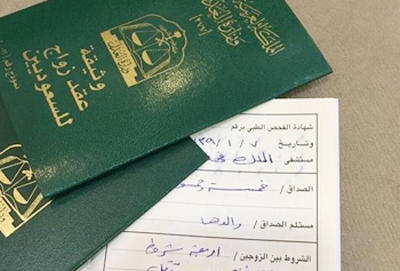 المملكة العربية السعودية
وزارة العدل
(٢٧٧)
وثيقة
عقد زواج
للسعوديين
شهادة الفحص الطبي برقم
وتاريخ ٧ / ١ / ٣٩
مستشفى الملك
الصداق / خمسة
مستلم الصداق / والدها
الشروط بين الزوجين / اربعة شروط